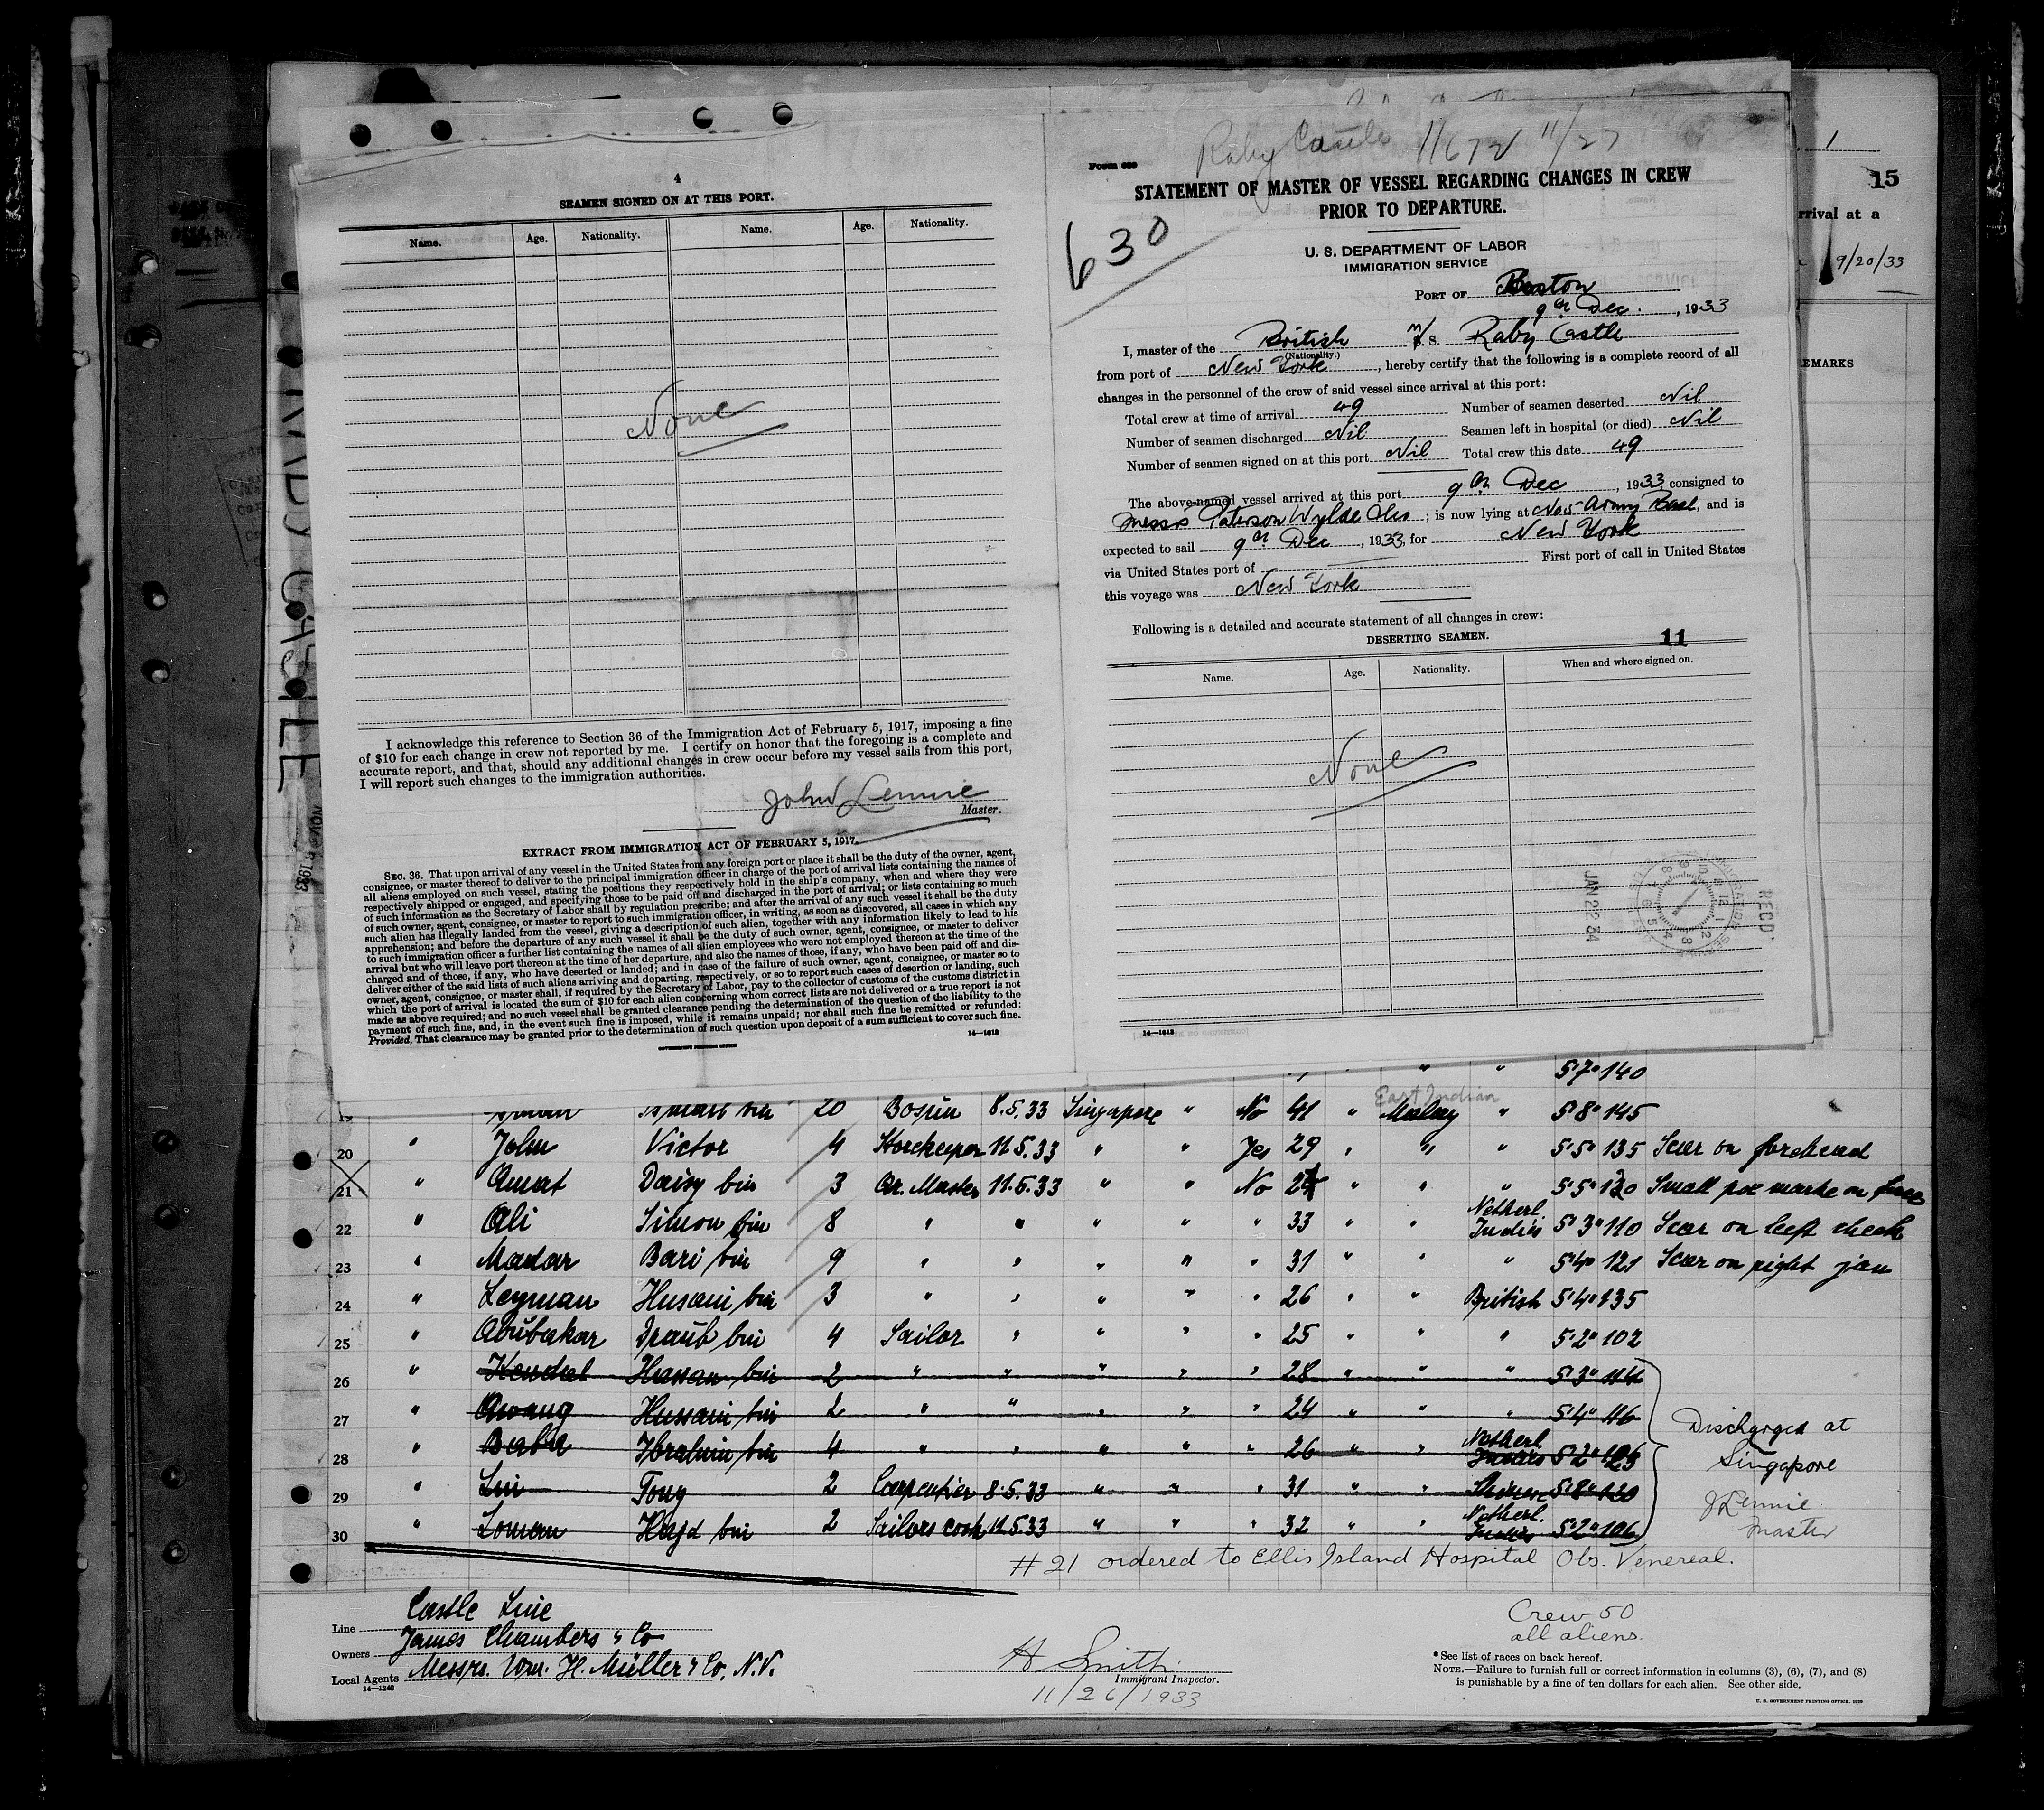 4
SEAMEN SIGNED ON AT THIS PORT.
Name. Age. Nationality. Name. Age. Nationality.
None
I acknowledge this reference to Section 36 of the Immigration Act of February 5, 1917, imposing a fine
of $10 for each change in crew not reported by me. I certify on honor that the foregoing is a complete and
accurate report, and that, should any additional changes in crew occur before my vessel sails from this port,
I will report such changes to the immigration authorities.
John Lennie
Master.
EXTRACT FROM IMMIGRATION ACT OF FEBRUARY 5, 1917.
SEC. 36. That upon arrival of any vessel in the United States from any foreign port or place it shall be the duty of the owner, agent,
consignee, or master thereof to deliver to the principal immigration officer in charge of the port of arrival lists containing the names of
all aliens employed on such vessel, stating the positions they respectively hold in the ship's company, when and where they were
respectively shipped or engaged, and specifying those to be paid off and discharged in the port of arrival; or lists containing so much
of such information as the Secretary of Labor shall by regulation prescribe; and after the arrival of any such vessel it shall be the duty
of such owner, agent, consignee, or master to report to such immigration officer, in writing, as soon as discovered, all cases in which any
such alien has illegally landed from the vessel, giving a description of such alien, together with any information likely to lead to his
apprehension; and before the departure of any such vessel it shall be the duty of such owner, agent, consignee, or master to deliver
to such immigration officer a further list containing the names of all alien employees who were not employed thereon at the time of the
arrival but who will leave port thereon at the time of her departure, and also the names of those, if any, who have been paid off and dis-
charged and of those, if any, who have deserted or landed; and in case of the failure of such owner, agent, consignee, or master so to
deliver either of the said lists of such aliens arriving and departing, respectively, or so to report such cases of desertion or landing, such
owner, agent, consignee, or master shall, if required by the Secretary of Labor, pay to the collector of customs of the customs district in
which the port of arrival is located the sum of $10 for each alien concerning whom correct lists are not delivered or a true report is not
made as above required; and no such vessel shall be granted clearance pending the determination of the question of the liability to the
payment of such fine, and, in the event such fine is imposed, while it remains unpaid; nor shall such fine be remitted or refunded:
Provided, That clearance may be granted prior to the determination of such question upon deposit of a sum sufficient to cover such fine.
GOVERNMENT PRINTING OFFICE 14—1613
Raby Castle 11672 11/27
Form 689
STATEMENT OF MASTER OF VESSEL REGARDING CHANGES IN CREW
PRIOR TO DEPARTURE.
630
U. S. DEPARTMENT OF LABOR
IMMIGRATION SERVICE
PORT OF Boston
9th Dec. , 1933
I, master of the British M/S. Raby Castle
(Nationality.)
from port of New York , hereby certify that the following is a complete record of all
changes in the personnel of the crew of said vessel since arrival at this port:
Total crew at time of arrival 49 Number of seamen deserted Nil
Number of seamen discharged Nil Seamen left in hospital (or died) Nil
Number of seamen signed on at this port Nil Total crew this date 49
The above-named vessel arrived at this port 9th Dec , 1933, consigned to
Messrs Paterson Wylde ; is now lying at Army Base, and is
expected to sail 9th Dec , 1933, for New York
via United States port of First port of call in United States
this voyage was New York
Following is a detailed and accurate statement of all changes in crew:
DESERTING SEAMEN. 11
Name. Age. Nationality. When and where signed on.
None
RECD.
JAN 22 34
14—1613
1
15
rrival at a
9/20/33
EMARKS
RABY CASTLE
" " 5'7" 140
East Indian
19 bin 20 Bosun 8.5.33 Singapore " No 41 " Malay " 5'8" 145
20 " John Victor 4 Storekeeper 11.5.33 " " Yes 29 " " " 5'5" 135 Scar on forehead
21 " Amat Daisy bin 3 Qr. Master 11.5.33 " " No " " " 5'5" 130 Small pox marks on face
22 " Ali Simon bin 8 " " " " " 33 " " Netherl. Indies 5'3" 110 Scar on left cheek
23 " Madar Bari bin 9 " " " " " 31 " " " 5'4" 121 Scar on right jaw
24 " Leyman Husani bin 3 " " " " " 26 " " British 5'4" 135
25 " Abubakar Draub bin 4 Sailor " " " " 25 " " " 5'2" 102
26 " Hassan bin 2 " " " " " 28 " " " 5'3" 114
27 " Awang Hussain bin 2 " " " " " 24 " " " 5'4" 116
28 " Baba Ibrahim bin 4 " " " " " 26 " " Netherl. Indies 5'2"
29 " Lui Tong 2 Carpenter 8.5.33 " " " 31 " " Chinese 5'8" 130
30 " Loman Hajd bin 2 Sailors cook 11.5.33 " " " 32 " " Netherl. Indies 5'2" 106
Discharged at
Singapore
J Lennie
Master
# 21 ordered to Ellis Island Hospital Obs. Venereal.
Line Castle Line
Owners James Chambers & Co
Local Agents Messrs. Wm. H. Müller & Co. N.V.
14—1240
H Smith
Immigrant Inspector.
11/26/1933
Crew 50
all aliens.
* See list of races on back hereof.
NOTE.—Failure to furnish full or correct information in columns (3), (6), (7), and (8)
is punishable by a fine of ten dollars for each alien. See other side.
U. S. GOVERNMENT PRINTING OFFICE: 1929